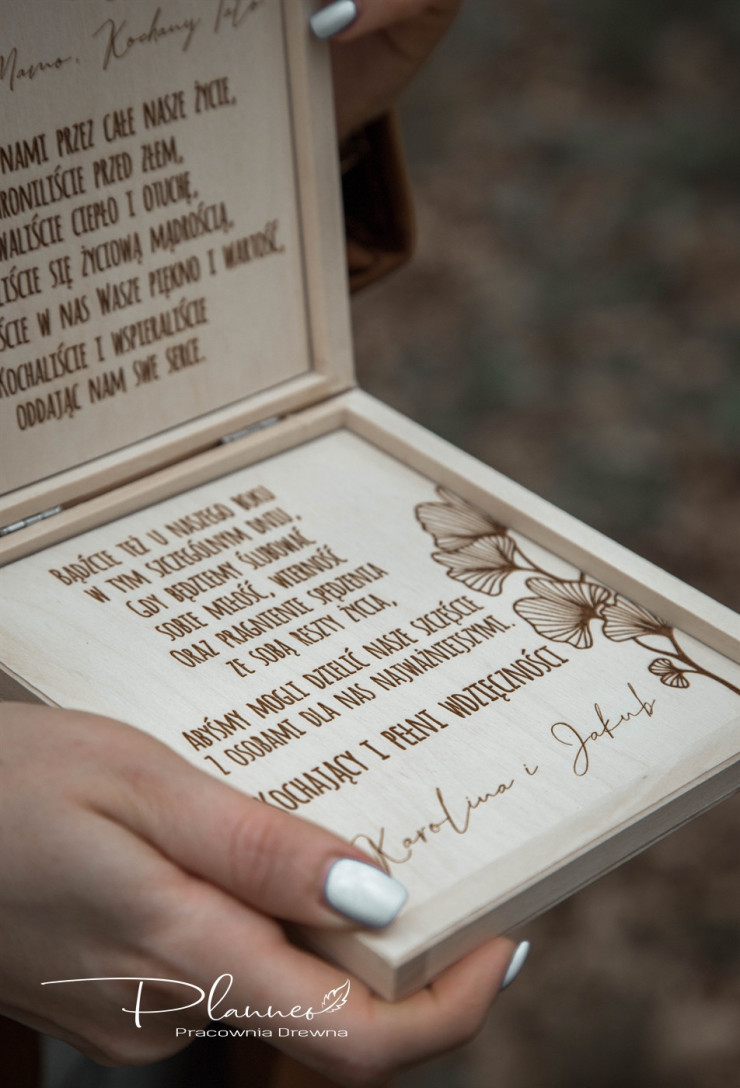 Mamo, Kochany Tato
NAMI PRZEZ CAŁE NASZE ŻYCIE,
RONILIŚCIE PRZED ZŁEM,
WALIŚCIE CIEPŁO I OTUCHĘ,
LIŚCIE SIĘ ŻYCIOWĄ MĄDROŚCIĄ,
ŚCIE W NAS WASZE PIĘKNO I WARTOŚĆ,
KOCHALIŚCIE I WSPIERALIŚCIE
ODDAJĄC NAM SWE SERCE.
BĄDŹCIE TEŻ U NASZEGO BOKU
W TYM SZCZEGÓLNYM DNIU,
GDY BĘDZIEMY ŚLUBOWAĆ
SOBIE MIŁOŚĆ, WIERNOŚĆ
ORAZ PRAGNIENIE SPĘDZENIA
ZE SOBĄ RESZTY ŻYCIA,
ABYŚMY MOGLI DZIELIĆ NASZE SZCZĘŚCIE
Z OSOBAMI DLA NAS NAJWAŻNIEJSZYMI.
KOCHAJĄCY I PEŁNI WDZIĘCZNOŚCI
Karolina i Jakub
Planneo
Pracownia Drewna